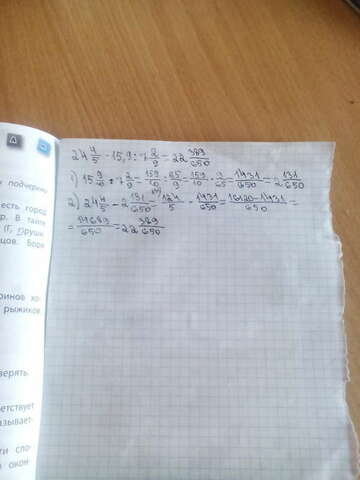 24 4/5 - 15,9 : 7 2/9 = 22 389/650
1) 15 9/10 : 7 2/9 = 159/10 : 65/9 = 159/10 · 9/65 = 1431/650 = 2 131/650
2) 24 4/5 - 2 131/650 = 124/5 - 1431/650 = 16120-1431/650 =
= 14689/650 = 22 389/650
подчеркни
есть город
р. В тайге
(Г, Други
цов. Боря
ринов хо-
рыжиков
верять.
етствует
зывает-
ти сло-
окон